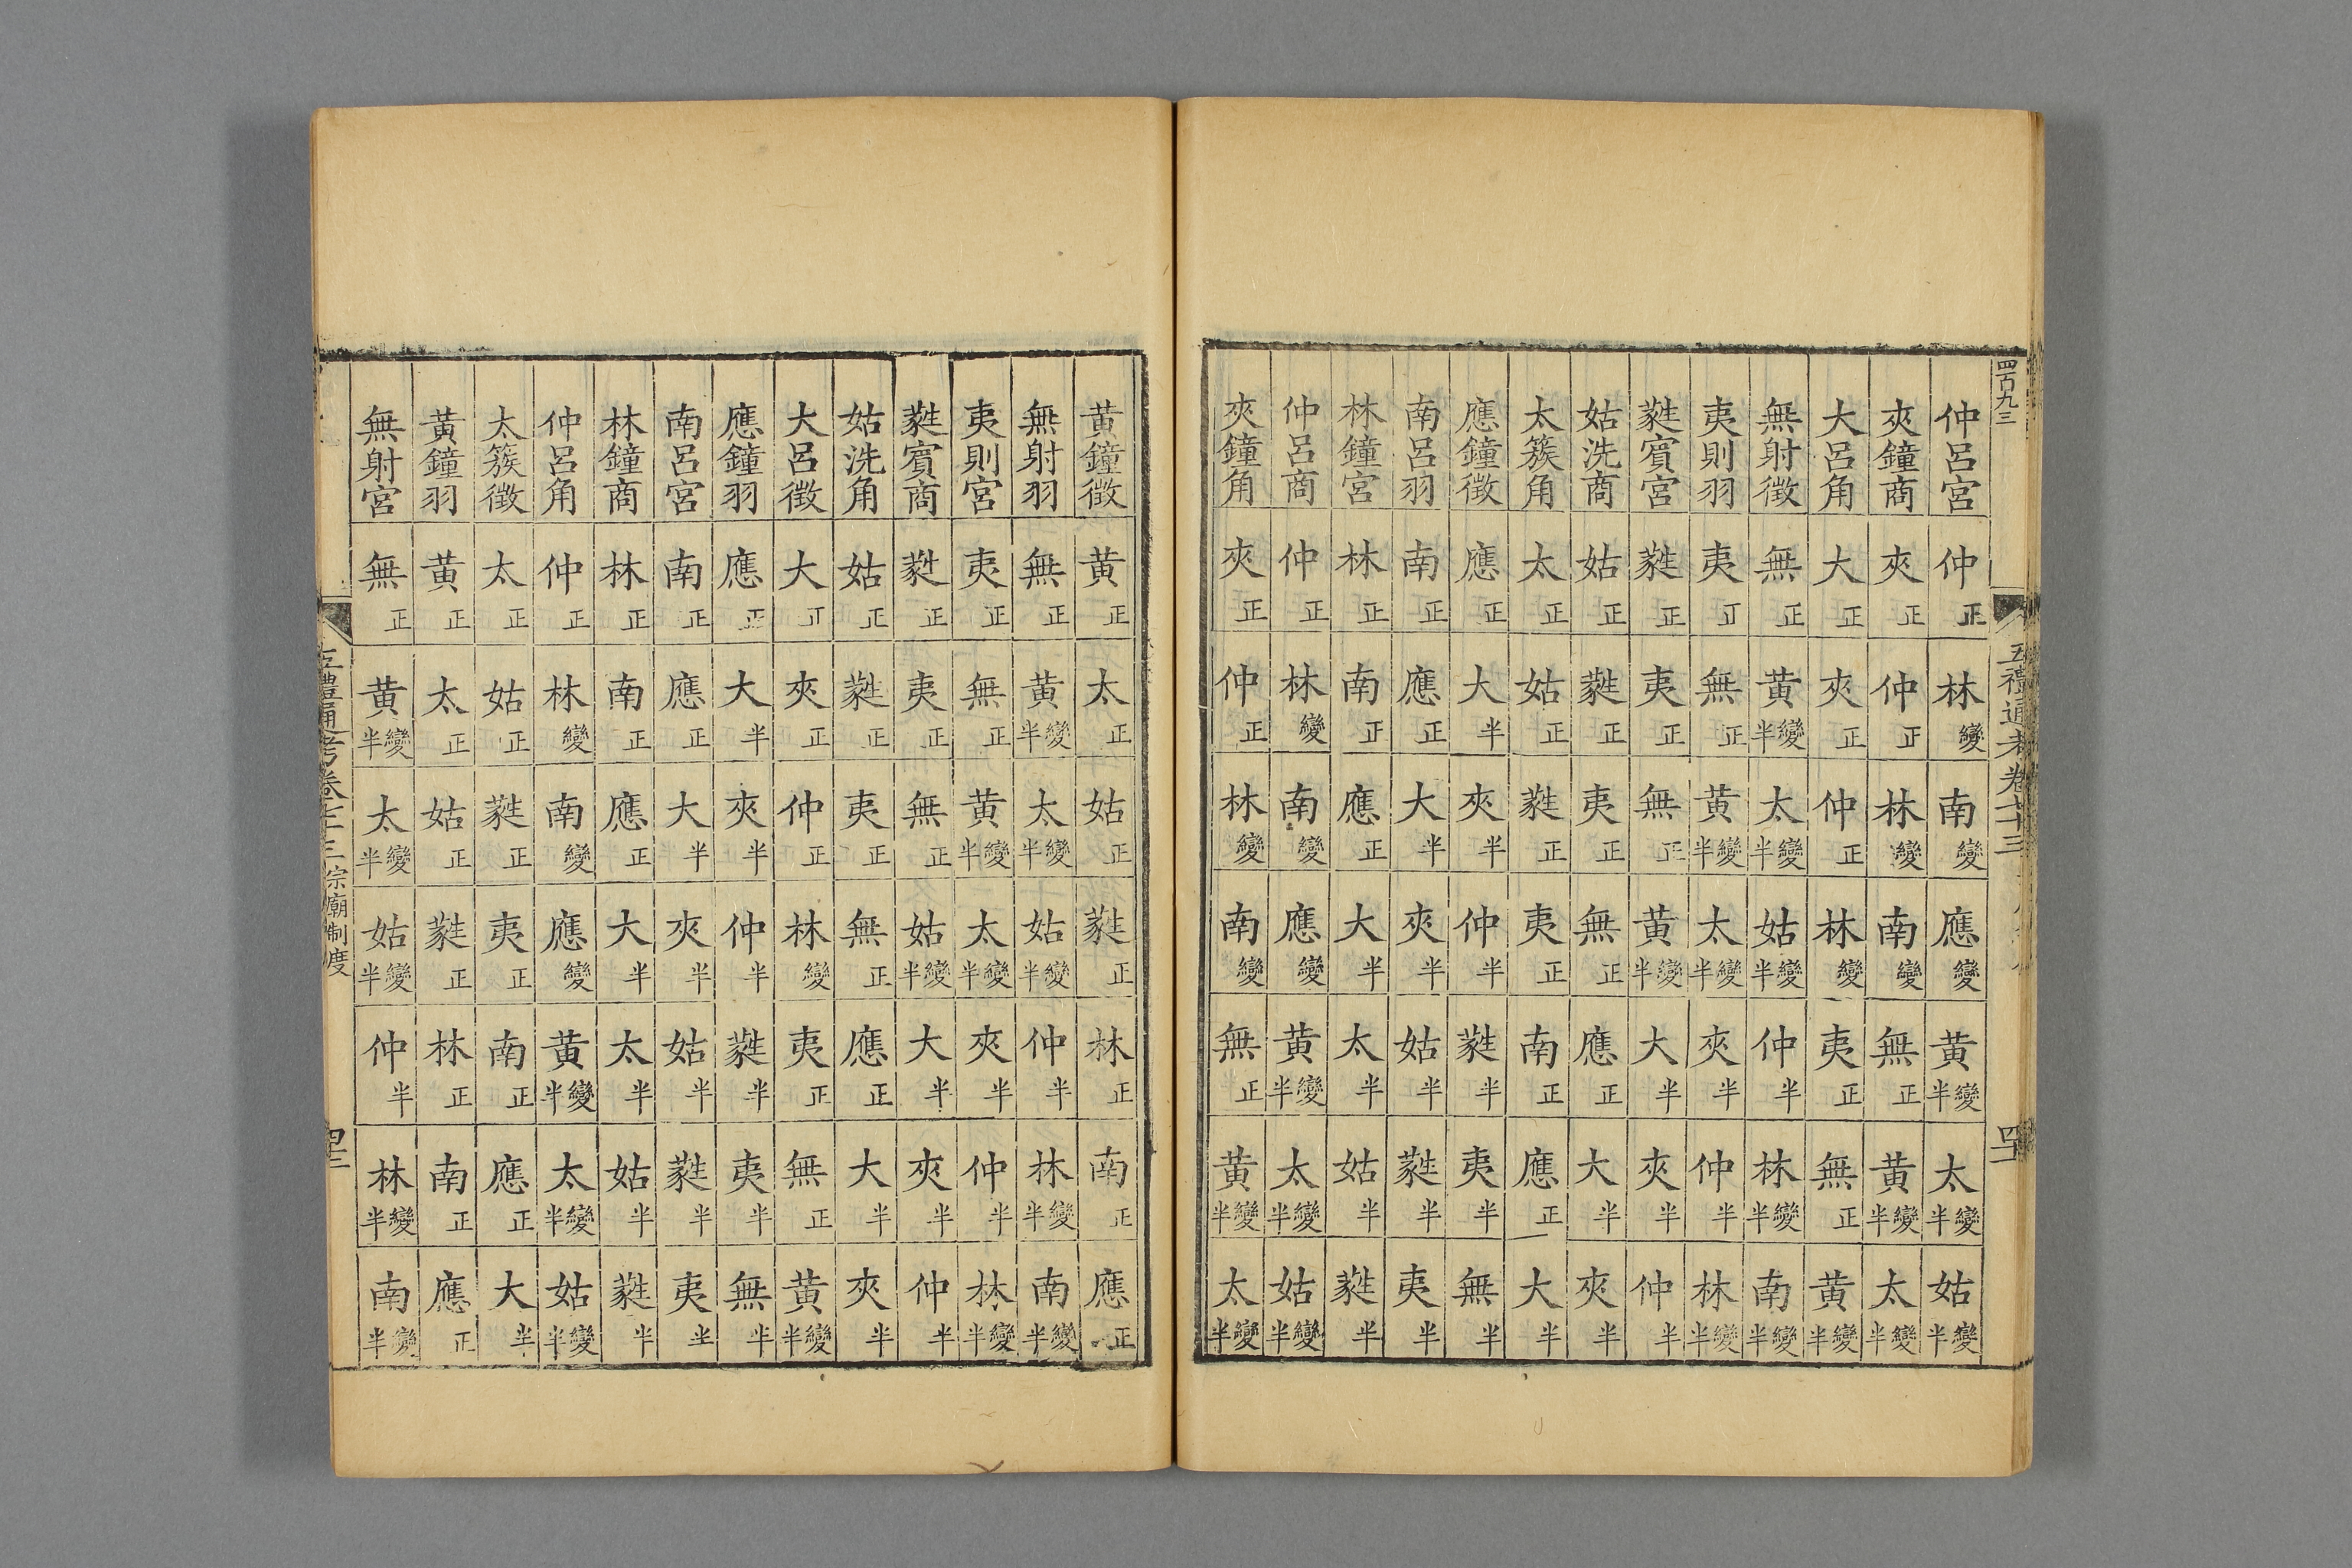 四百九三 五禮通考卷七十三 四十一
仲呂宮 仲正 林變 南變 應變 黄變半 太變半 姑變半
夾鐘商 夾正 仲正 林變 南變 無正 黄變半 太變半
大呂角 大正 夾正 仲正 林變 夷正 無正 黄變半
無射徵 無正 黄變半 太變半 姑變半 仲半 林變半 南變半
夷則羽 夷正 無正 黄變半 太變半 夾半 仲半 林變半
蕤賓宮 蕤正 夷正 無正 黄變半 大半 夾半 仲半
姑洗商 姑正 蕤正 夷正 無正 應正 大半 夾半
太簇角 太正 姑正 蕤正 夷正 南正 應正 大半
應鐘徵 應正 大半 夾半 仲半 蕤半 夷半 無半
南呂羽 南正 應正 大半 夾半 姑半 蕤半 夷半
林鐘宮 林正 南正 應正 大半 太半 姑半 蕤半
仲呂商 仲正 林變 南變 應變 黄變半 太變半 姑變半
夾鐘角 夾正 仲正 林變 南變 無正 黄變半 太變半
黄鐘徵 黄正 太正 姑正 蕤正 林正 南正 應正
無射羽 無正 黄變半 太變半 姑變半 仲半 林變半 南變半
夷則宮 夷正 無正 黄變半 太變半 夾半 仲半 林變半
蕤賓商 蕤正 夷正 無正 姑變半 大半 夾半 仲半
姑洗角 姑正 蕤正 夷正 無正 應正 大半 夾半
大呂徵 大正 夾正 仲正 林變 夷正 無正 黄變半
應鐘羽 應正 大半 夾半 仲半 蕤半 夷半 無半
南呂宮 南正 應正 大半 夾半 姑半 蕤半 夷半
林鐘商 林正 南正 應正 大半 太半 姑半 蕤半
仲呂角 仲正 林變 南變 應變 黄變半 太變半 姑變半
太簇徵 太正 姑正 蕤正 夷正 南正 應正 大半
黄鐘羽 黄正 太正 姑正 蕤正 林正 南正 應正
無射宮 無正 黄變半 太變半 姑變半 仲半 林變半 南變半
五禮通考卷七十三 宗廟制度 四十二